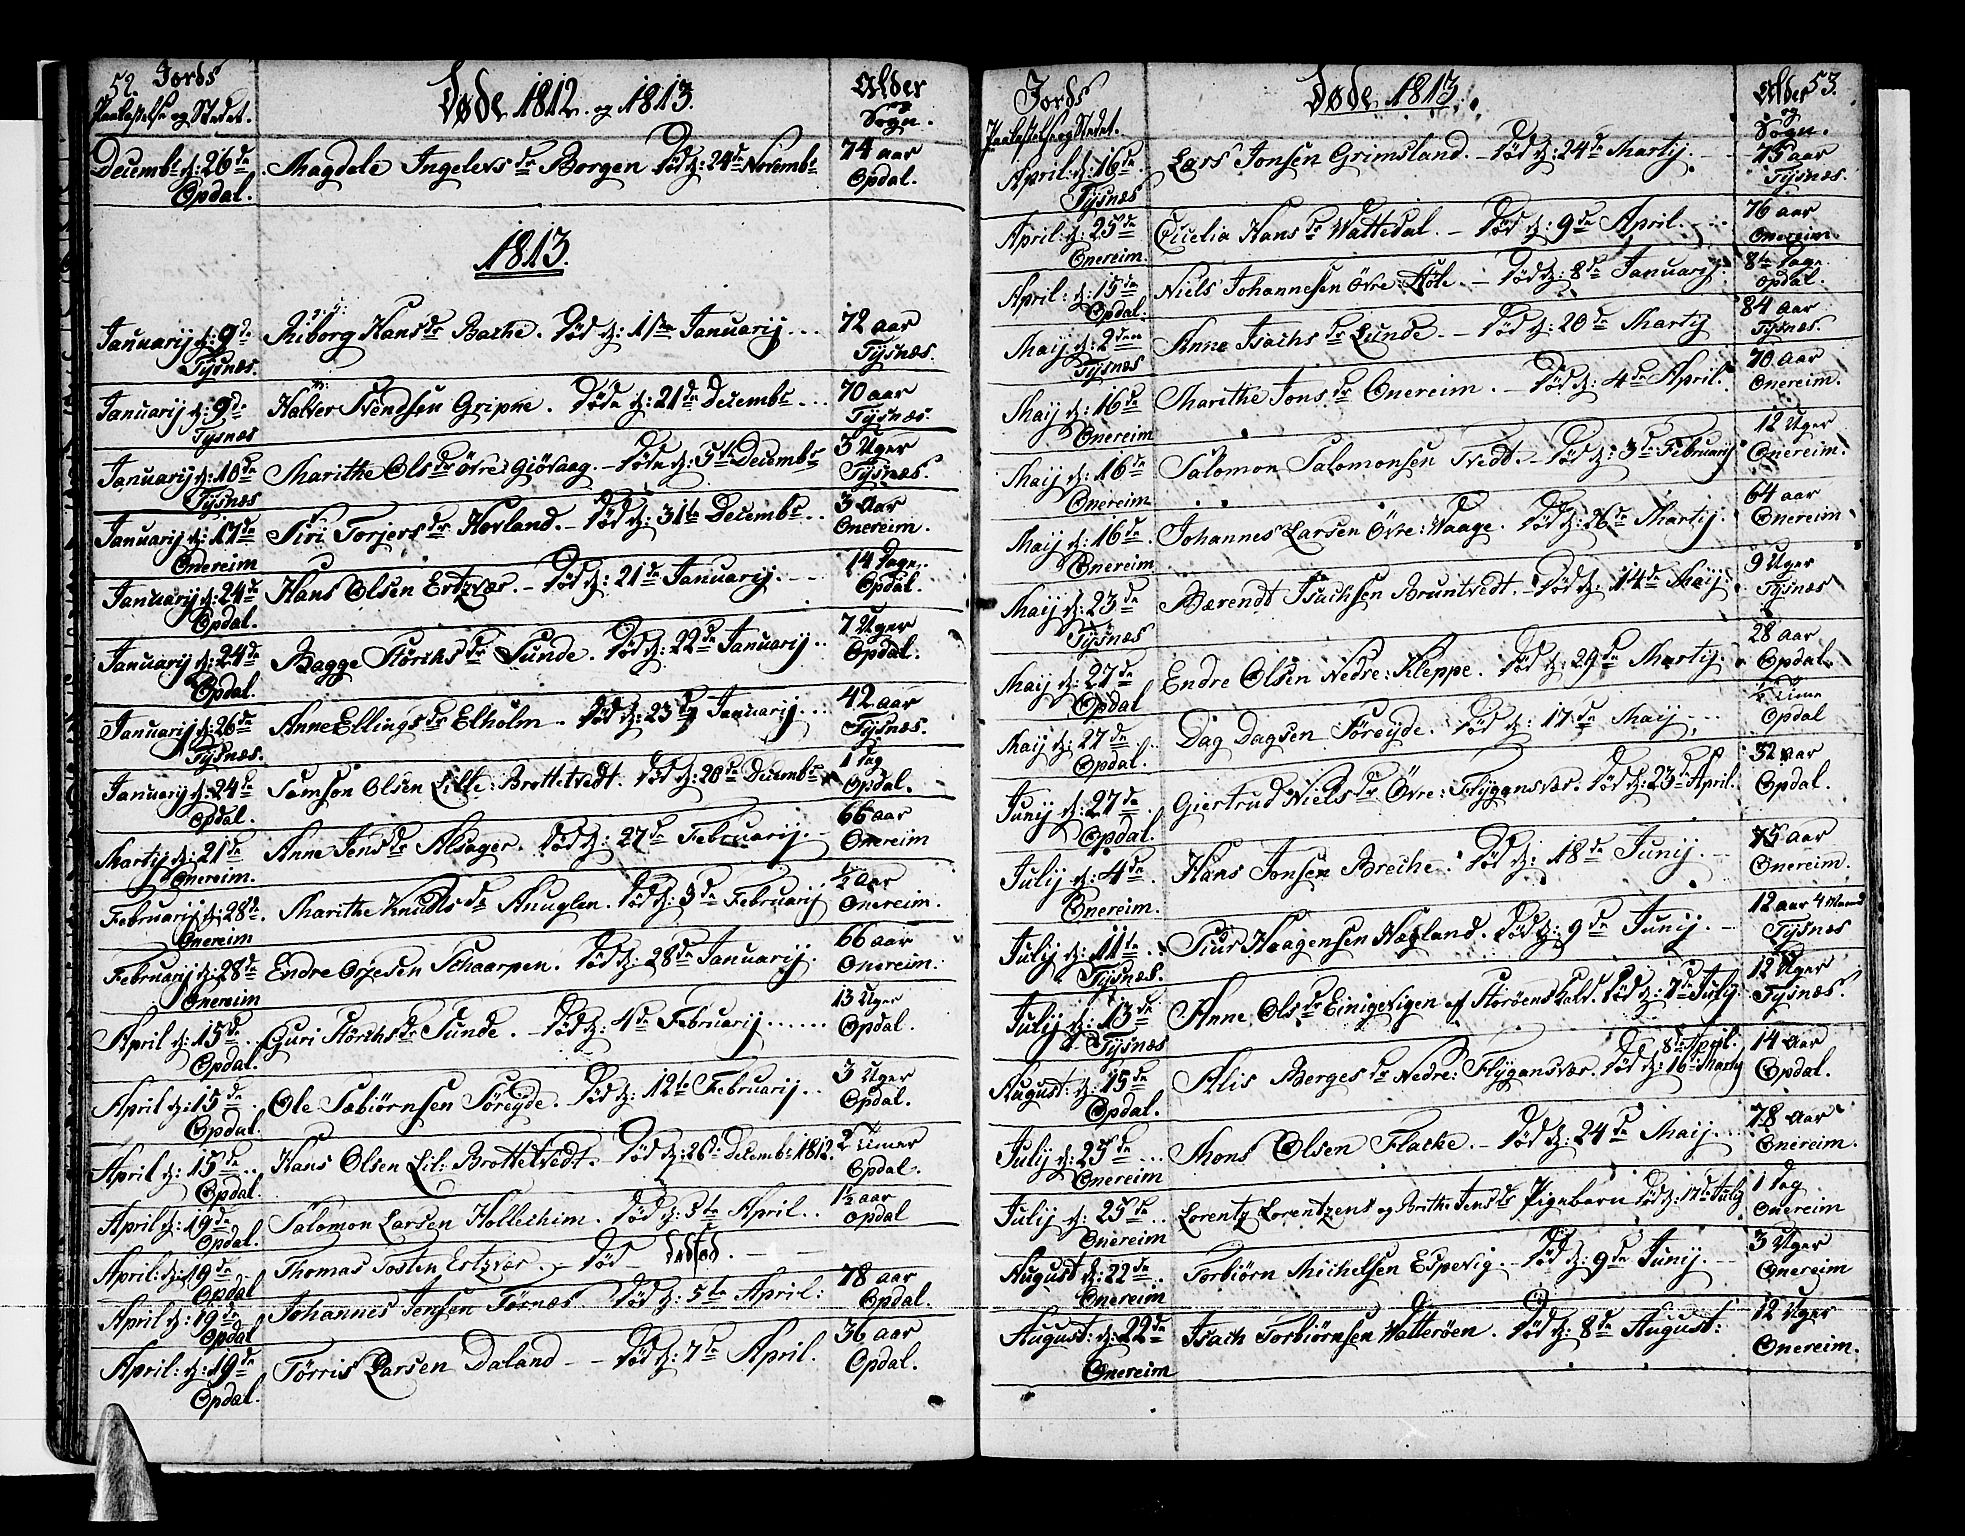 52. Jords
Paakastelse og Stedet.
Døde 1812. og 1813.
Alder
og
Sogn.
Decembr d: 26de Magdele Ingelevs dr Borgen Død d: 24de Novembr 74 aar
Opdal. Opdal.
1813.
Januarij d: 9de Riborg Hans dr Bache. Død d: 1ste Januarij... 72 aar
Tysnæs. Tysnæs.
Januarij d: 9de Halver Svendsen Gripne. Døde d: 21de Decembr... 70 aar
Tysnæs Tysnæs.
Januarij d: 10de Marithe Ols dr Øvre Giøvaag. - Døde d: 5te Decembr 3 Uger
Tysnæs Tysnæs.
Januarij d: 17de Siri Torjers dr Hovland. - Død d: 31te Decembr.. 3 Aar
Onereim Onereim.
Januarij d: 24de Hans Olsen Ertzvær. - Død d: 21de Januarij. 14 Dage.
Opdal. Opdal.
Januarij d: 24de Bagge Størchs dr Sunde. Død d: 22de Januarij.. 7 Uger
Opdal. Opdal.
Januarij d: 26de Anne Ellings dr Elholm. Død d: 23de Januarij... 42 aar
Tysnæs. Tysnæs.
Januarij d: 24de Samson Olsen Lille: Brottetvedt. Død d: 20de Decembr 1 Dag
Opdal. Opdal.
Martij d: 21de Anne Jens dr Alsager. Død d: 27de Februarij. 66 aar
Onereim. Onereim
Februarij d: 28de. Marithe Knudts dr Anuglen. Død d: 3de Februarij ½ Aar
Onereim Onereim.
Februarij d: 28de Endre Orjesen Schaarpen. Død d: 28de Januarij. 66 aar
Onereim Onereim.
April d: 15de. Guri Størchs dr Sunde. - Død d: 4de Februarij...... 13 Uger
Opdal. Opdal.
April d: 15de Ole Sæbiørnsen Søreyde. Død d: 12te Februarij.. 3 Uger
Opdal. Opdal.
April d: 15de.. Hans Olsen Lil: Brottetvedt. Død d: 26de Decembr 1812. 2 Timer
Opdal. Opdal.
April d: 19de Salomon Larsen Hollechim. Død d: 5te April.. 1½ aar
Opdal. Opdal
April: d: 19de Thomas Tosten Ertzvær. - Død dødfød. - -
Opdal
April: d: 19de Johannes Jensen Tørnæs. Død d: 5te April: 78 aar
Opdal Opdal.
April: d: 19de Tørris Larsen Daland - - Død d: 7de April. 36 aar
Opdal. Opdal.
Jords
Paakastelse og Stedet.
Døde 1813.
Alder 53.
og
Sogn.
April: d: 16de Lars Jonsen Grimsland. - Død d: 24de Martij. 75 aar
Tysnæs Tysnæs.
April: d: 25de Cicelia Hans dr Wattedal. - Død d: 9de April. 76 aar
Onereim. Onereim.
April: d: 15de Niels Johannesen Øvre Høle. - Død d: 8de Januarij. 8te Dage
Opdal. Opdal.
Maij d: 2den Anne Isachs dr Lunde. - Død d: 20de Martij 84 aar
Tysnæs Tysnæs.
Maij d: 16de Marithe Jons dr Onereim. - Død d: 4de April. 70 aar
Onereim Onereim.
Maij d: 16de Salomon Salomonsen Tvedt. - Død d: 3de Februarij 12 Uger
Onereim Onereim.
Maij d: 16de. Johannes Larsen Øvre: Waage. Død d: 26de Martij. 64 aar
Onereim Onereim
Maij d: 23de Bærendt Isachsen Bruntvedt. - Død d: 14de Maij. 9 Uger
Tysnæs Tysnæs
Maij d: 27de Endre Olsen Nedre: Kleppe. Død d: 29de Martij. 28 aar
Opdal Opdal.
Maij d: 27de Dag Dagsen Søreyde. Død d: 17de Maij, ½ Time
Opdal. Opdal
Junij d: 27de. Giertrud Niels dr Øvre: Flygansvær. Død d: 23de April. 32 aar
Opdal. Opdal.
Julij d: 4de. Hans Jonsen Breche. Død d: 18de Junij. 75 aar
Onereim. Onereim.
Julij d: 11te. Siur Haagensen Hægland. Død d: 9de Junij. - 12 aar 4 Maaned
Tysnæs. Tysnæs
Julij d: 13de Anne Ols dr Einigevigen af Storøens Kald. Død d: 7de Julij. 12 Uger
Tysnæs Tysnæs.
8de April.
August: d: 15de Alis Berges dr Nedre: Flygansvær. Død d: 16de Martij 14 Aar
Opdal. Opdal.
Julij d: 25de... Mons Olsen Flache. - Død d: 24de Maij... 78 Aar
Onereim Onereim.
Julij d: 25de.. Lorentz Lorentzens og Brithe Jens dr Pigebarn Død d: 17de Julij 1 Dag
Onereim Onereim
August d: 22de.. Torbiørn Michelsen Espevig. - Død d: 9de Junij. 3 Uger
Onereim Onereim
August: d: 22de Isach Torbiørnsen Watterøen. Død d: 8de August: 12 Uger
Onereim Onereim.